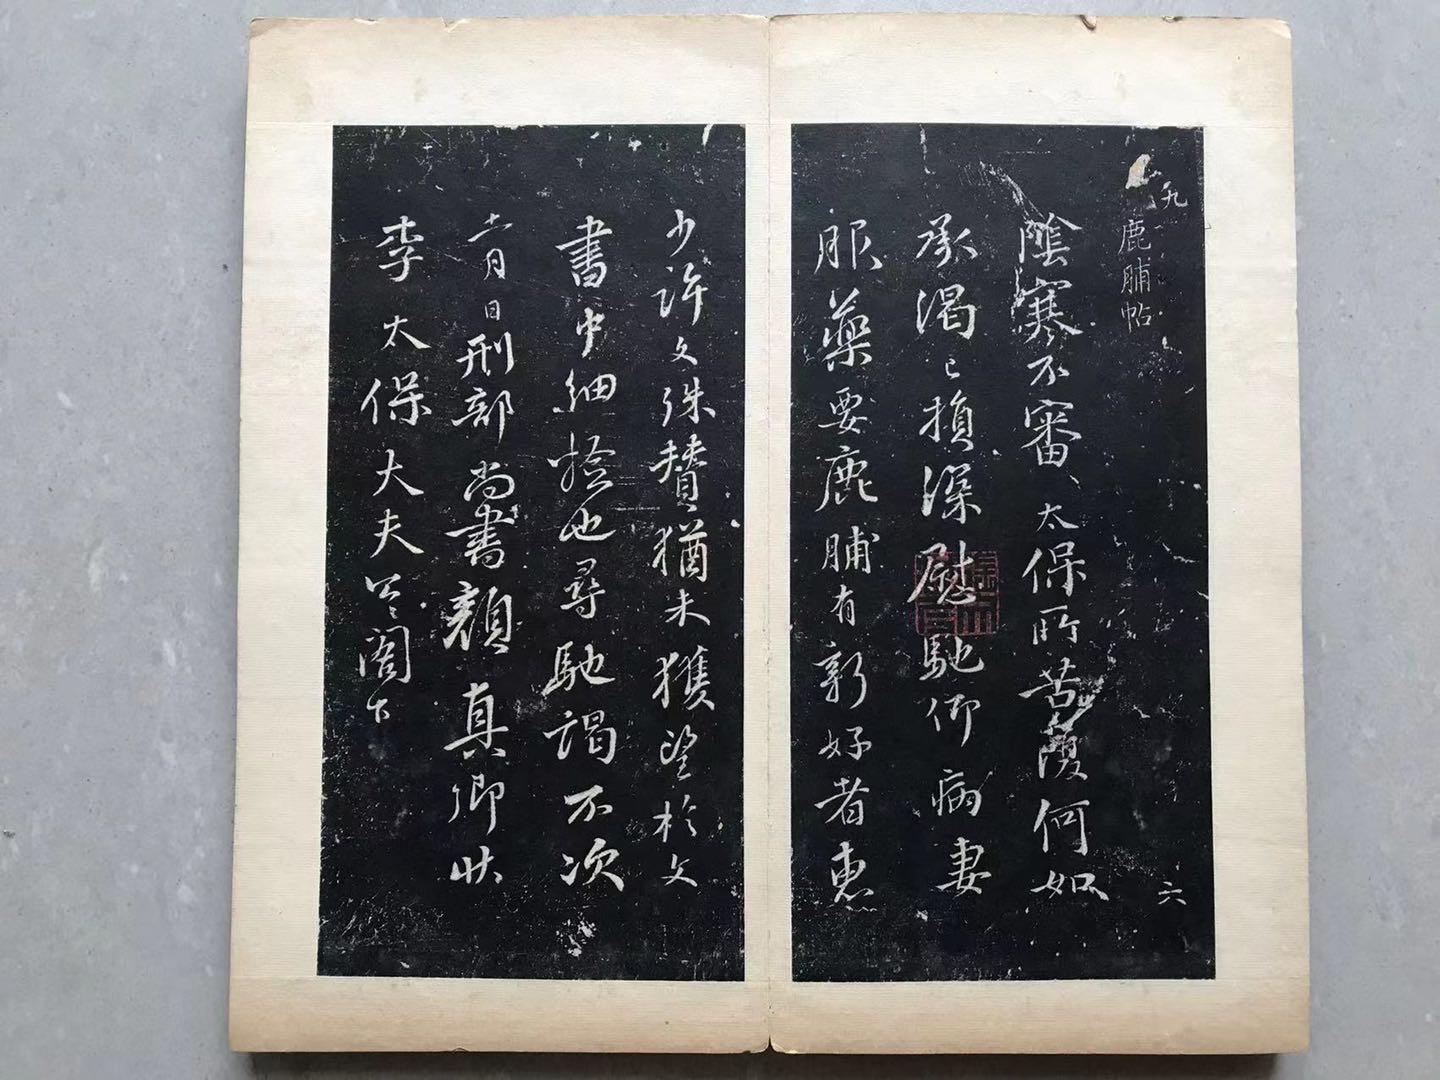 九
鹿脯帖
陰寒不審太保所苦復何如
承渴已損深慰馳仰病妻
服藥要鹿脯有新好者惠
六
少許文殊贊猶未獲望於文
書中細撿也尋馳謁不次
十一月日刑部尚書顏真卿狀
李太保大夫公閣下